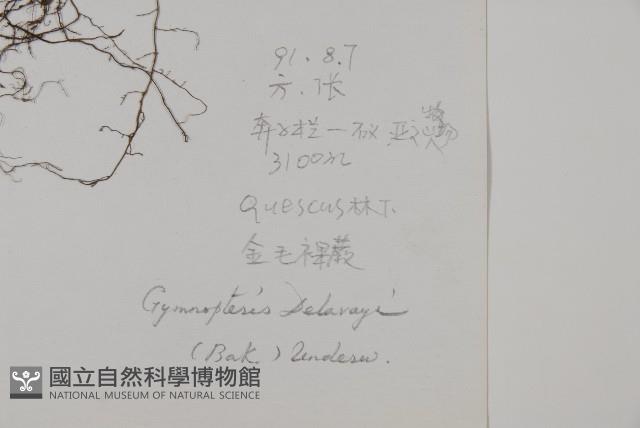 91.8.7
方.张
奔子栏一
3100m
Quescus林下
金毛裸蕨
Gymnopteris Delavayi
(Bak.) Underw.
國立自然科學博物館
NATIONAL MUSEUM OF NATURAL SCIENCE